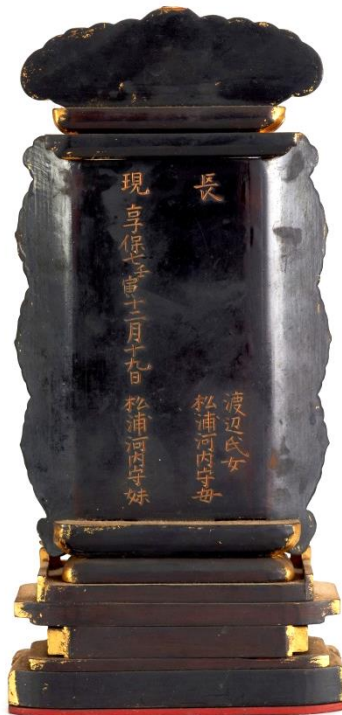 長
渡辺氏女
松浦河内守母
現 享保七壬寅十二月十九日 松浦河内守妹